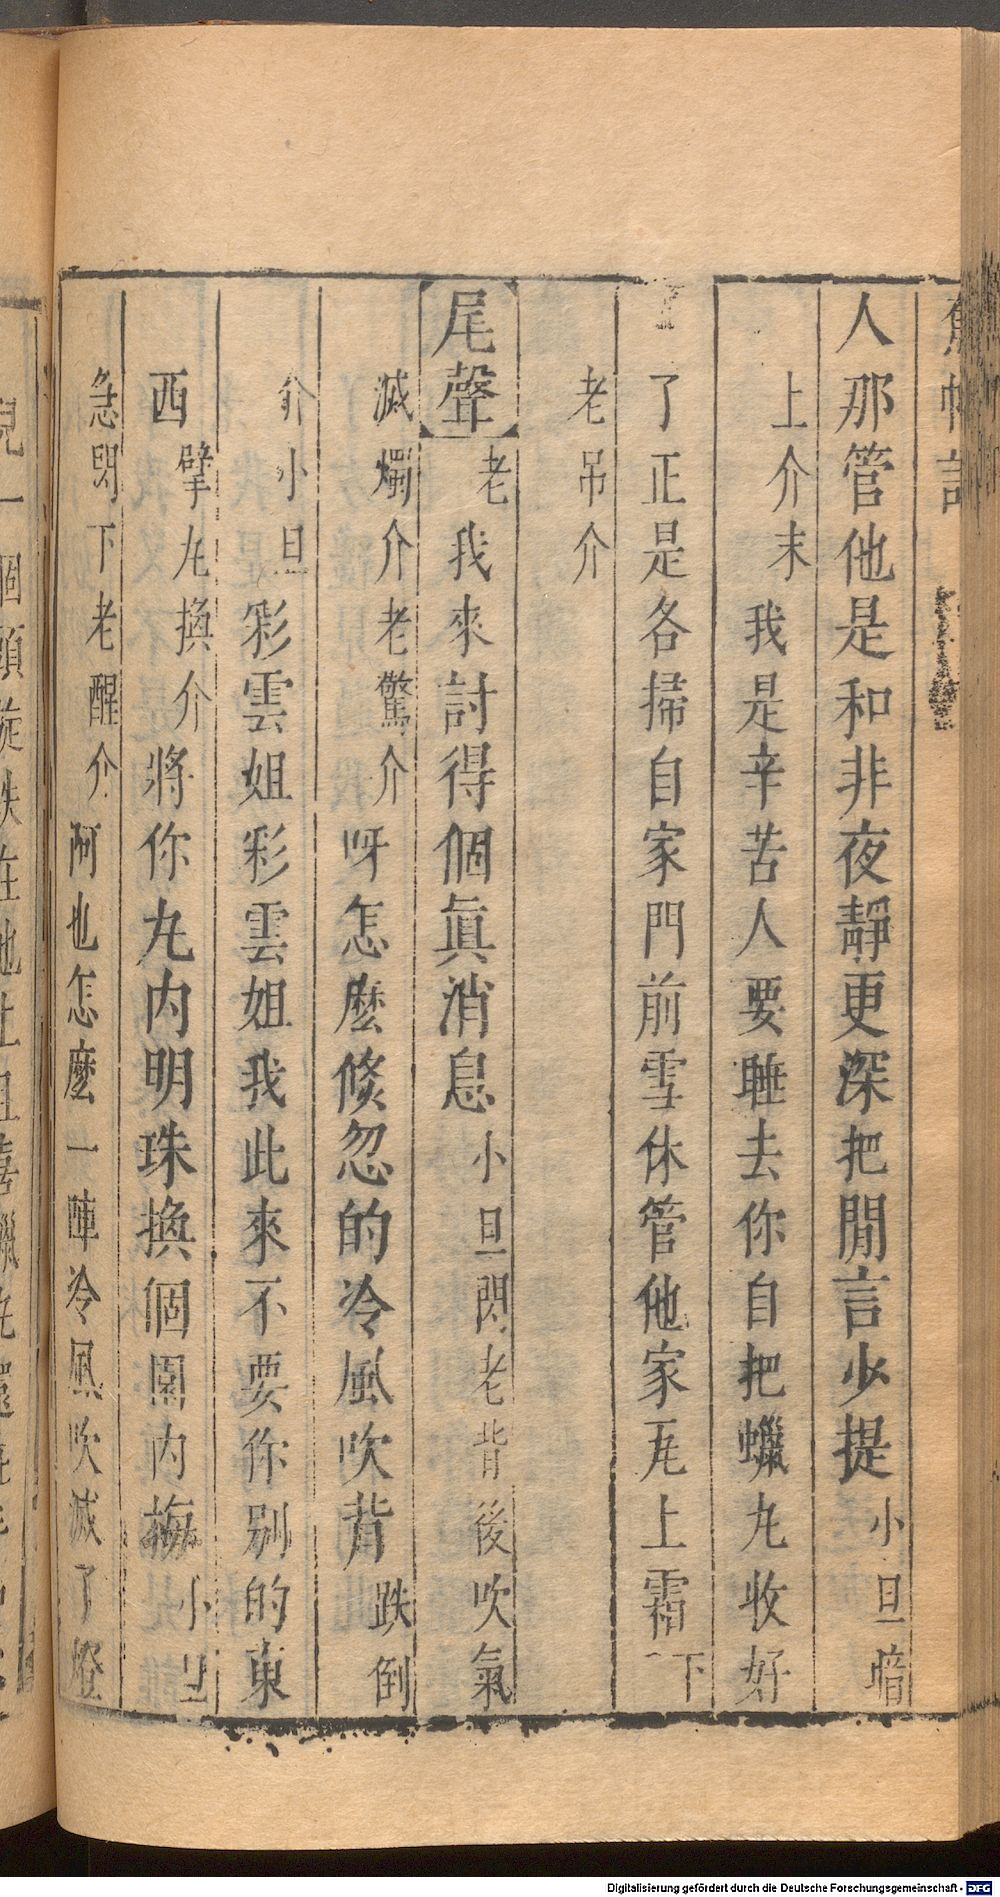 蕉帕記
人那管他是和非夜靜更深把閒言少提小旦暗
上介末我是辛苦人要睡去你自把蠟丸收好
了正是各掃自家門前雪休管他家瓦上霜下
老吊介
尾聲老我來討得個眞消息小旦閃老背後吹氣
滅燭介老驚介呀怎麼倐忽的冷風吹背跌倒
介小旦彩雲姐彩雲姐我此來不要你别的東
西擘丸換介將你丸内明珠換個園内梅小旦
急閃下老醒介阿也怎麼一陣冷風吹滅了燈
Digitalisierung gefördert durch die Deutsche Forschungsgemeinschaft - DFG